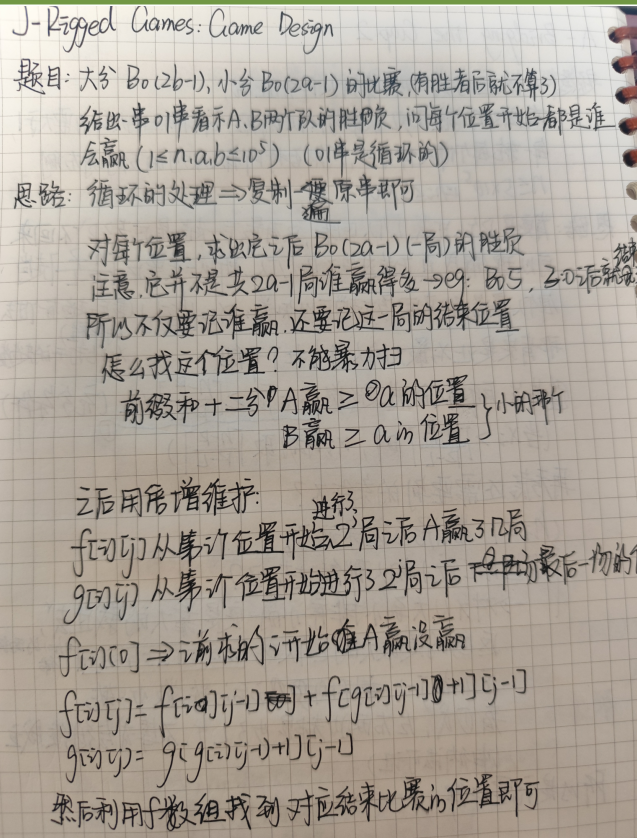 J-Rigged Games: Game Design
题目: 大分 Bo(2b-1), 小分 Bo(2a-1) 的比赛 (有胜者后就不算了)
给出一串01串表示A、B两个队的胜负, 问每个位置开始都是谁
会赢 (1≤n,a,b≤10^5) (01串是循环的)
思路: 循环的处理⇒复制一遍原串即可
对每个位置, 求出它之后 Bo(2a-1)(一局)的胜负
注意, 它并不是共2a-1局谁赢得多→eg: Bo5, 3:0之后就结束
所以不仅要记谁赢, 还要记这一局的结束位置
怎么找这个位置? 不能暴力扫
前缀和+二分 A赢≥a的位置
B赢≥a的位置 } 小的那个
之后用倍增维护:
f[i][j] 从第i个位置开始, 进行了2^j局之后A赢了几局
g[i][j] 从第i个位置开始进行了2^j局之后 最后一场的
f[i][0]⇒之前求的i开始A赢没赢
f[i][j]=f[i][j-1]+f[g[i][j-1]+1][j-1]
g[i][j]=g[g[i][j-1]+1][j-1]
然后利用f数组找到对应结束比赛的位置即可